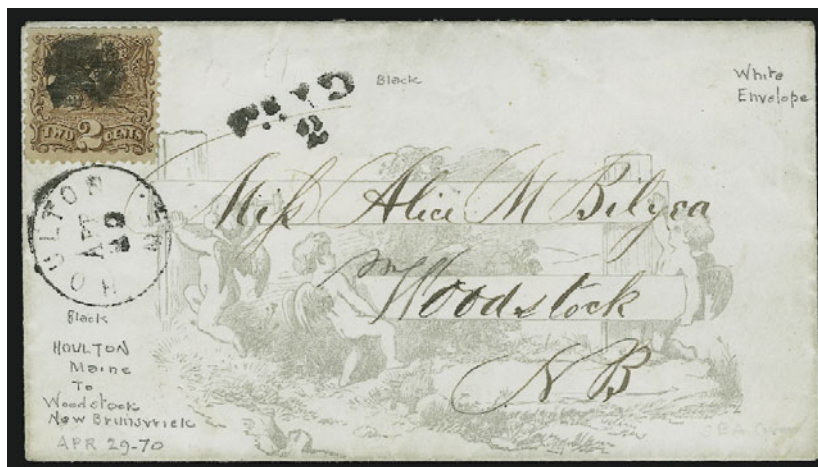 PAID
2
Black
White
Envelope
TWO 2 CENTS
HOULTON
ME
APR
29
Miss Alice M Bilyea
Woodstock
N B
Black
HOULTON
Maine
To
Woodstock
New Brunswick
APR 29-70